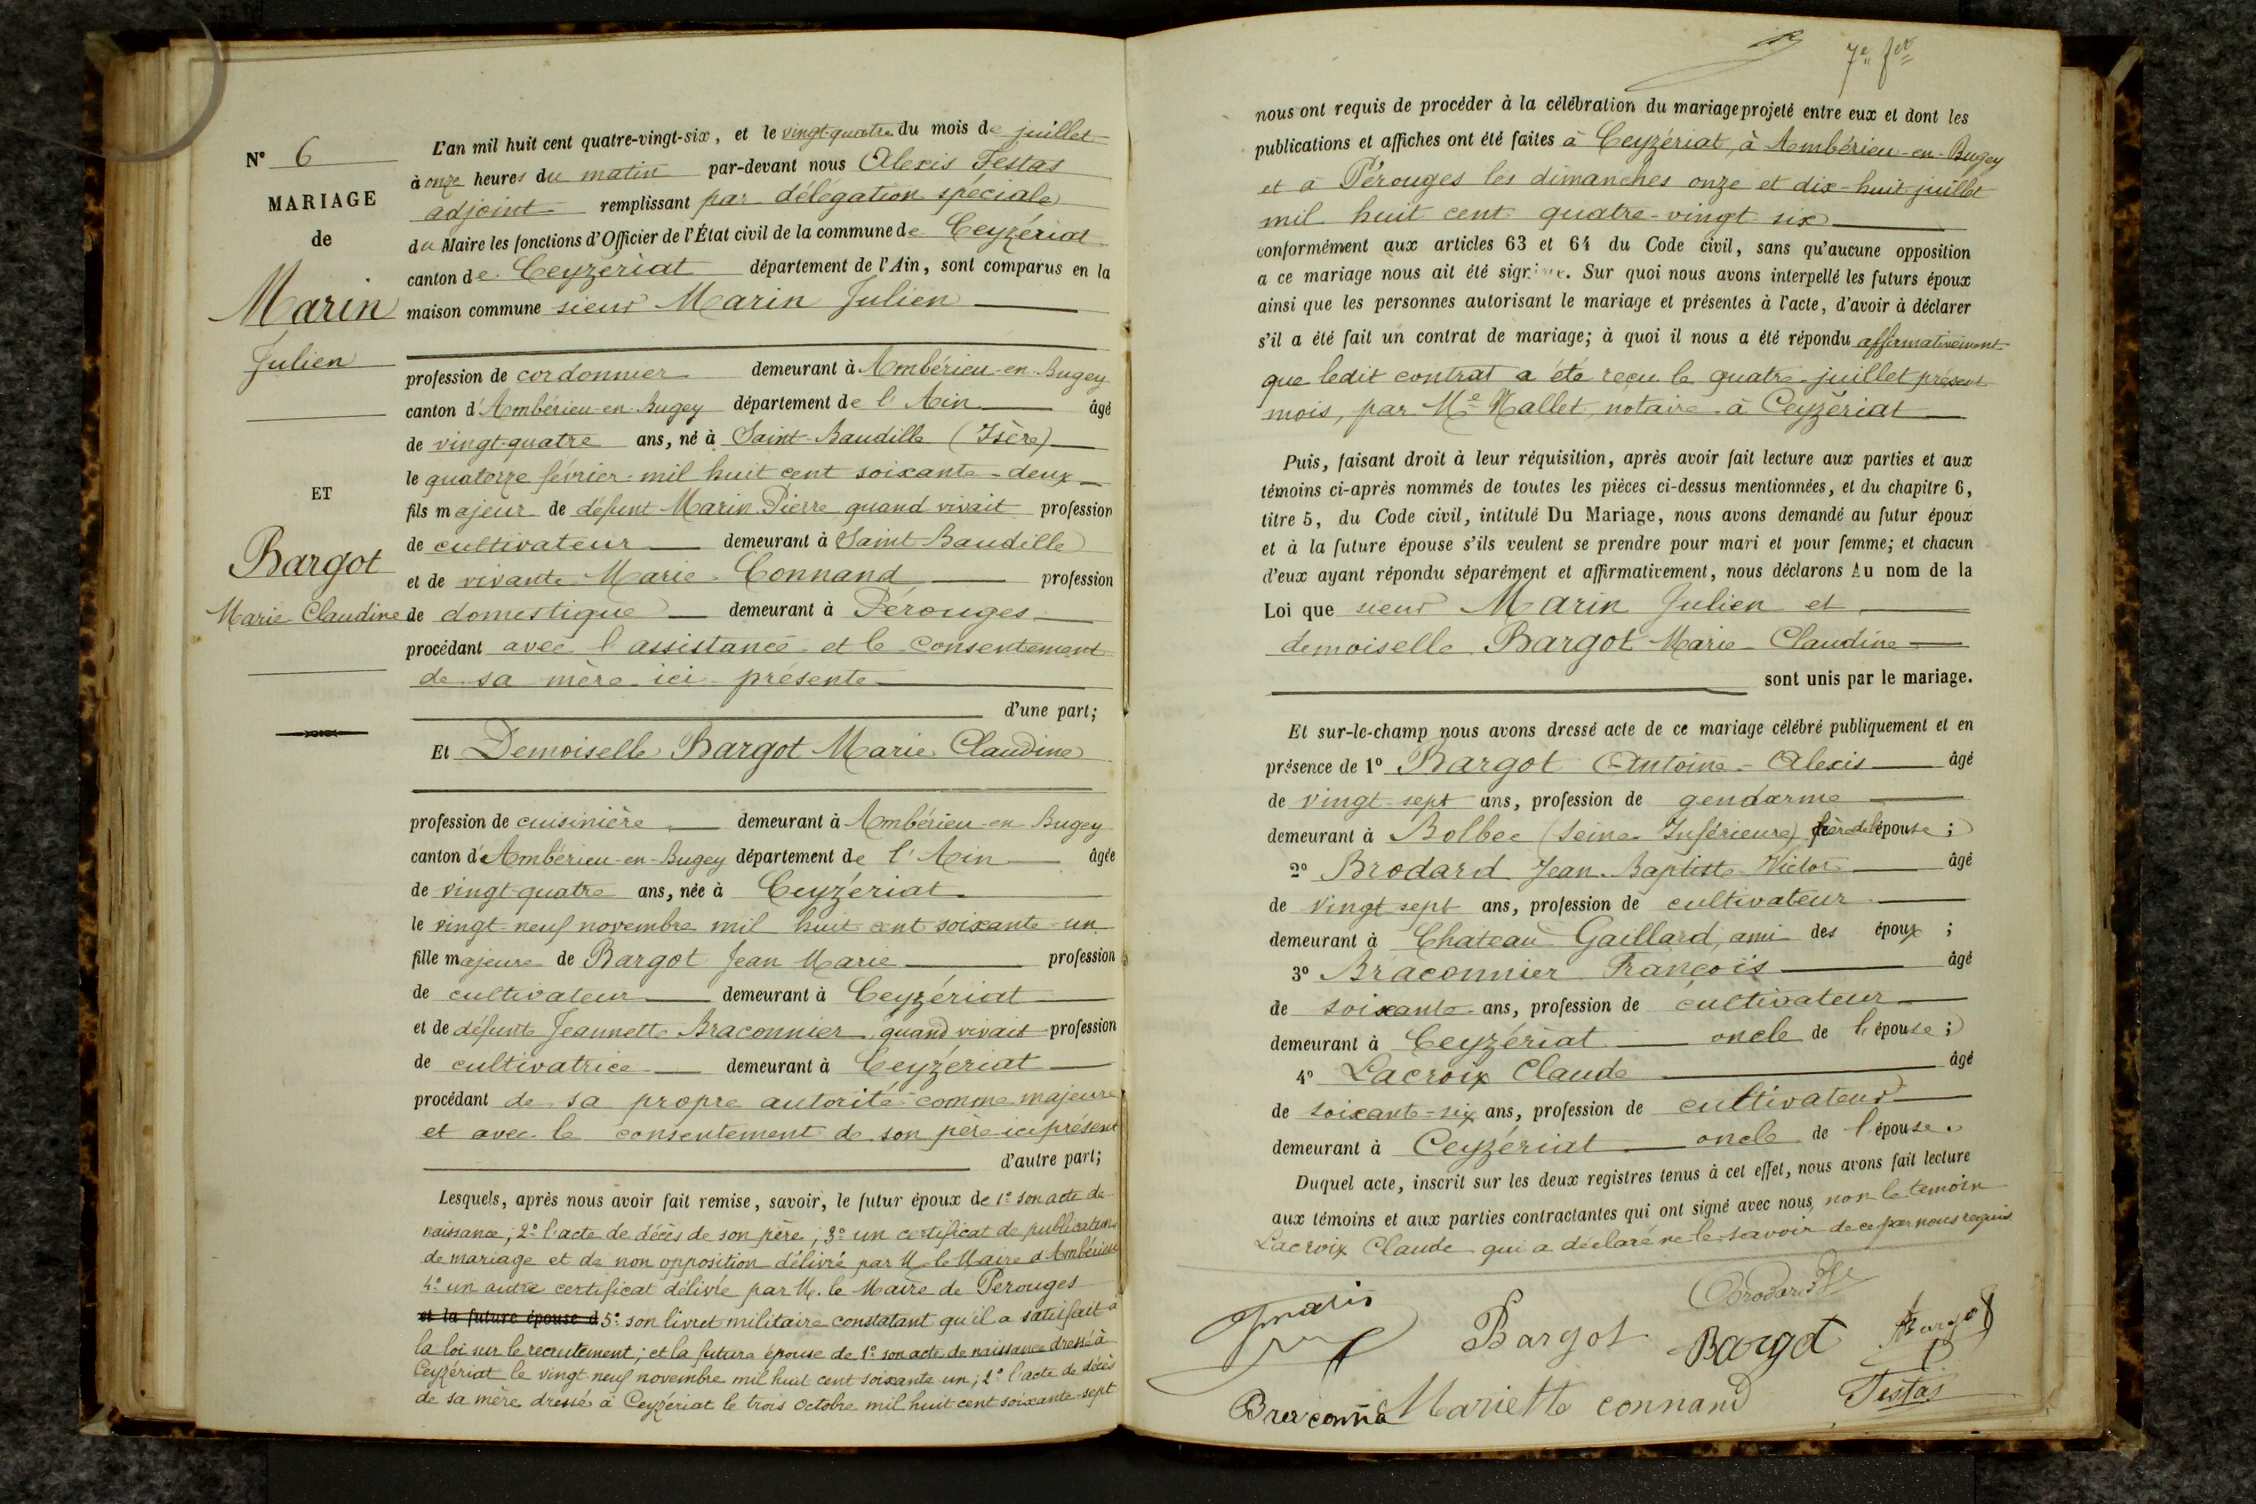 N° 6
MARIAGE
de
Marin
Julien
ET
Bargot
Marie Claudine
L'an mil huit cent quatre-vingt-six, et le vingt-quatre du mois de juillet
à onze heures du matin par-devant nous Alexis Festas
adjoint remplissant par délégation spéciale
du Maire les fonctions d'Officier de l'État civil de la commune de Ceyzériat
canton de Ceyzériat département de l'Ain, sont comparus en la
maison commune sieur Marin Julien
profession de cordonnier demeurant à Ambérieu-en-Bugey
canton d'Ambérieu-en-Bugey département de l'Ain âgé
de vingt-quatre ans, né à Saint-Baudille (Isère)
le quatorze février mil huit cent soixante-deux
fils majeur de défunt Marin Pierre quand vivait profession
de cultivateur demeurant à Saint-Baudille
et de vivante Marie Connand profession
de domestique demeurant à Pérouges
procédant avec l'assistance et le consentement
de sa mère ici présente
d'une part;
Et Demoiselle Bargot Marie Claudine
profession de cuisinière demeurant à Ambérieu-en-Bugey
canton d'Ambérieu-en-Bugey département de l'Ain âgée
de vingt-quatre ans, née à Ceyzériat
le vingt-neuf novembre mil huit cent soixante-un
fille majeure de Bargot Jean Marie profession
de cultivateur demeurant à Ceyzériat
et de défunte Jeannette Braconnier quand vivait profession
de cultivatrice demeurant à Ceyzériat
procédant de sa propre autorité comme majeure
et avec le consentement de son père ici présent
d'autre part;
Lesquels, après nous avoir fait remise, savoir, le futur époux de 1° son acte de
naissance; 2° l'acte de décès de son père; 3° un certificat de publications
de mariage et de non opposition délivré par M. le Maire d'Ambérieu
4° un autre certificat délivré par M. le Maire de Pérouges
et la future épouse d 5° son livret militaire constatant qu'il a satisfait à
la loi sur le recrutement; et la future épouse de 1° son acte de naissance dressé à
Ceyzériat le vingt neuf novembre mil huit cent soixante un; 2° l'acte de décès
de sa mère dressé à Ceyzériat le trois octobre mil huit-cent soixante-sept
7e fer
nous ont requis de procéder à la célébration du mariage projeté entre eux et dont les
publications et affiches ont été faites à Ceyzériat, à Ambérieu-en-Bugey
et à Pérouges les dimanches onze et dix-huit juillet
mil huit cent quatre-vingt six
conformément aux articles 63 et 64 du Code civil, sans qu'aucune opposition
a ce mariage nous ait été signifiée. Sur quoi nous avons interpellé les futurs époux
ainsi que les personnes autorisant le mariage et présentes à l'acte, d'avoir à déclarer
s'il a été fait un contrat de mariage; à quoi il nous a été répondu affirmativement
que ledit contrat a été reçu le quatre juillet présent
mois, par Me Mallet, notaire à Ceyzériat
Puis, faisant droit à leur réquisition, après avoir fait lecture aux parties et aux
témoins ci-après nommés de toutes les pièces ci-dessus mentionnées, et du chapitre 6,
titre 5, du Code civil, intitulé Du Mariage, nous avons demandé au futur époux
et à la future épouse s'ils veulent se prendre pour mari et pour femme; et chacun
d'eux ayant répondu séparément et affirmativement, nous déclarons Au nom de la
Loi que sieur Marin Julien et
demoiselle Bargot Marie Claudine
sont unis par le mariage.
Et sur-le-champ nous avons dressé acte de ce mariage célébré publiquement et en
présence de 1° Bargot Antoine-Alexis âgé
de vingt-sept ans, profession de gendarme
demeurant à Bolbec (Seine-Inférieure) frère de l'épouse;
2° Brodard Jean-Baptiste Victor âgé
de vingt sept ans, profession de cultivateur
demeurant à Chateau Gaillard, ami des époux;
3° Braconnier François âgé
de soixante ans, profession de cultivateur
demeurant à Ceyzériat oncle de l'épouse;
4° Lacroix Claude âgé
de soixante-six ans, profession de cultivateur
demeurant à Ceyzériat oncle de l'épouse.
Duquel acte, inscrit sur les deux registres tenus à cet effet, nous avons fait lecture
aux témoins et aux parties contractantes qui ont signé avec nous, non le temoin
Lacroix Claude qui a déclaré ne le savoir de ce par nous requis
Brodard
Jmarin
Bargot Bargot Bargot
Braconnié Mariette connand Festas